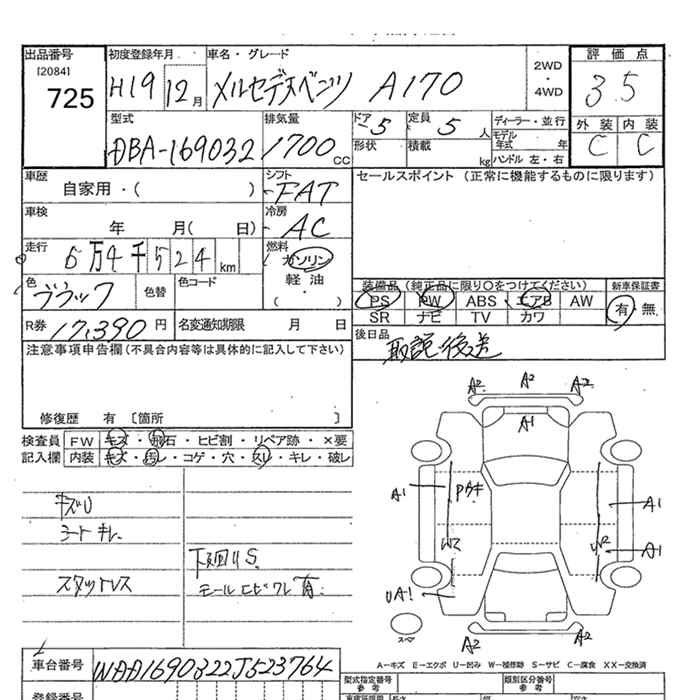 出品番号 初度登録年月 車名・グレード 評価点
[2084]
725 H19 12月 メルセデスベンツ A170 2WD・4WD 3.5
型式 排気量 ドア 5 定員 5人 ディーラー・並行 外装 内装
DBA-169032 1700cc 形状 積載 kg モデル年式 年 C C
ハンドル 左・右
車歴 自家用・( ) シフト FAT セールスポイント (正常に機能するものに限ります)
車検 年 月( 日) 冷房 AC
走行 6万4千524km 燃料 ガソリン
色 ブラック 色替 色コード 軽油 ( ・ ) 装備品 (純正品に限り○をつけてください) 新車保証書
PS PW ABS エアB AW 有・無
R券 17,390円 名変通知期限 月 日 SR ナビ TV カワ
注意事項申告欄(不具合内容等は具体的に記入して下さい) 後日品 取説・後送
修復歴 有 [箇所 ]
検査員 FW キズ・飛石・ヒビ割・リペア跡・×要
記入欄 内装 キズ・汚レ・コゲ・穴・スレ・キレ・破レ
キズU
シート キレ
下回りS
スタッドレス モールヒビワレ有
A2 A2 A2
A1
A1 A1
W2 W2 A1
UA1
スペア A2 A2
A-キズ E-エクボ U-凹み W-補修跡 S-サビ C-腐食 XX-交換済
車台番号 WDD1690322J523764 型式指定番号 参考 類別区分番号 参考
登録番号